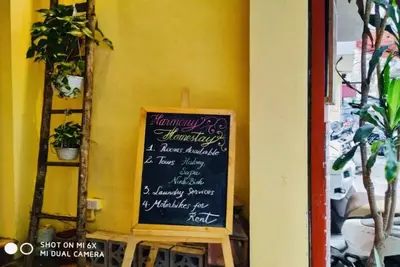 Harmony
Homestay
1. Rooms Available
2. Tours Halong
Sapa
Ninh Binh
3. Laundry Services
4. Motorbikes for
Rent
SHOT ON MI 6X
MI DUAL CAMERA